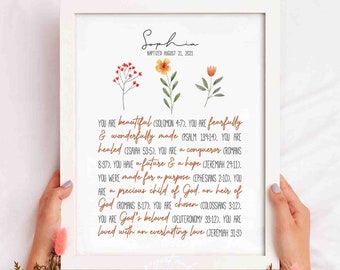 Sophia
BAPTIZED AUGUST 21, 2021
YOU ARE beautiful (SOLOMON 4:7), YOU ARE fearfully
& wonderfully made (PSALM 139:14), YOU ARE
healed (ISAIAH 53:5), YOU ARE a conqueror (ROMANS
8:37), YOU HAVE a future & a hope (JEREMIAH 29:11),
YOU WERE made for a purpose (EPHESIANS 2:10), YOU
ARE a precious child of God, an heir of
God (ROMANS 8:17), YOU ARE chosen (COLOSSIANS 3:12),
YOU ARE God's beloved (DEUTERONOMY 33:12), YOU ARE
loved with an everlasting love (JEREMIAH 31:3)